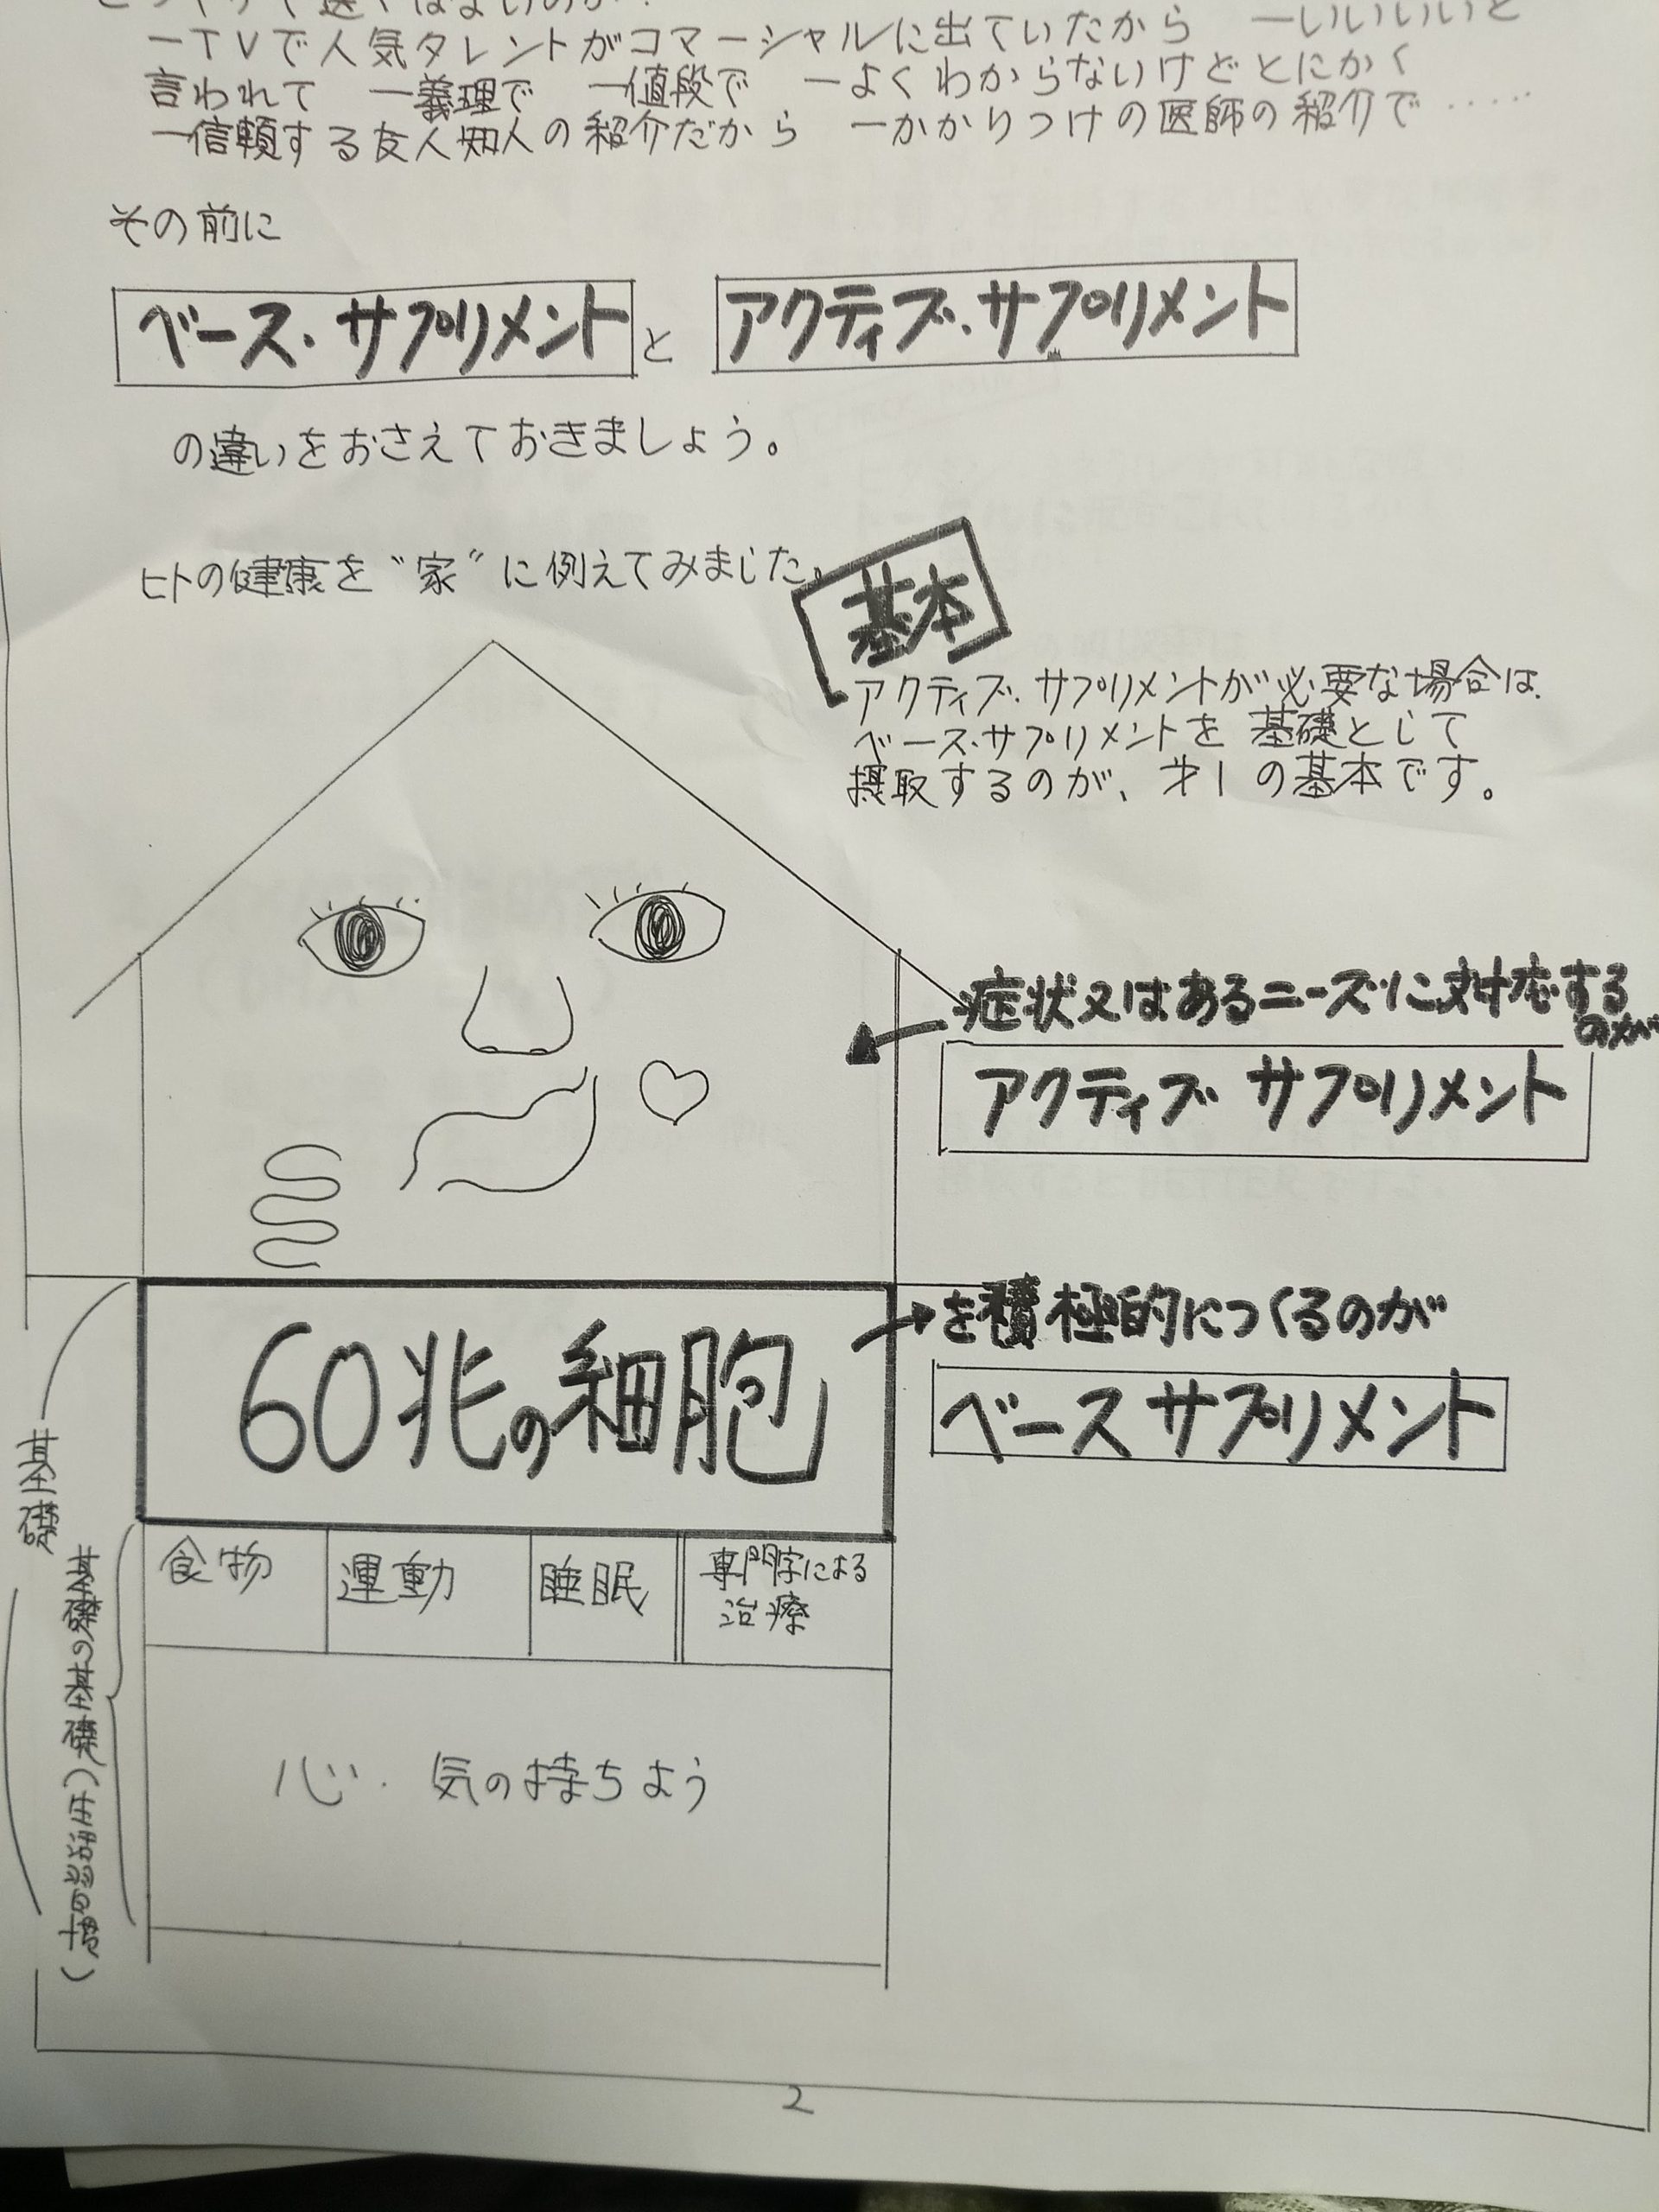 ーTVで人気タレントがコマーシャルに出ていたから ーいいいいと
言われて ー義理で ー値段で ーよくわからないけどとにかく
ー信頼する友人知人の紹介だから ーかかりつけの医師の紹介で ‥‥‥
その前に
ベース・サプリメント と アクティブ・サプリメント
の違いをおさえておきましょう。
ヒトの健康を“家”に例えてみました。
基本
アクティブ・サプリメントが必要な場合は
ベース・サプリメントを 基礎として
摂取するのが、才1の基本です。
症状又はあるニーズに対応する
のが
アクティブ サプリメント
60兆の細胞
を積極的につくるのが
ベース サプリメント
基礎
基礎の基礎(生活習慣)
食物
運動
睡眠
専門家による
治療
心・気の持ちよう
2